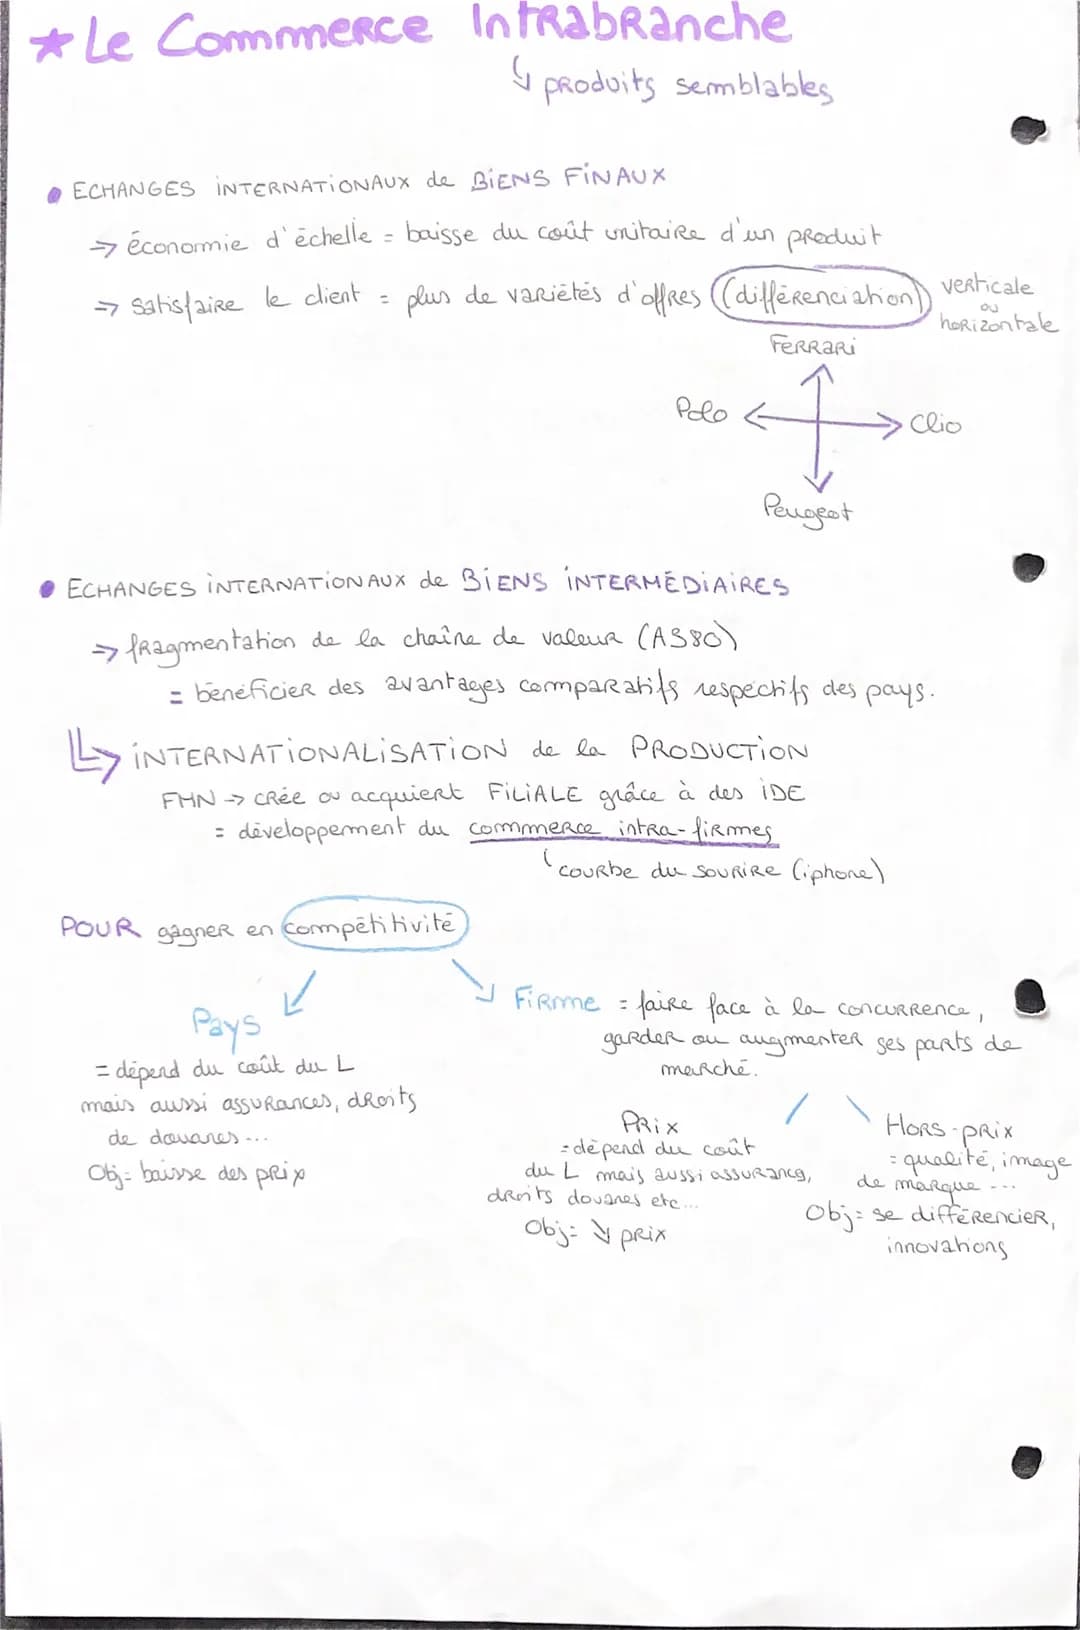 ★ Le Commerce Intrabranche
↳ produits semblables
• ECHANGES INTERNATIONAUX de BIENS FINAUX
=> économie d'échelle = baisse du coût unitaire d'un produit
=> satisfaire le client = plus de variétés d'offres (différenciation) verticale
ou
horizontale
Ferrari
Polo
Clio
Peugeot
• ECHANGES INTERNATIONAUX de BIENS INTERMÉDIAIRES
=> fragmentation de la chaîne de valeur (AS80)
= bénéficier des avantages comparatifs respectifs des pays.
↳ INTERNATIONALISATION de la PRODUCTION
FMN -> crée ou acquiert FILIALE grâce à des IDE
= développement du commerce intra-firmes
courbe du sourire (iphone)
POUR gagner en compétitivité
Pays
= dépend du coût du L
mais aussi assurances, droits
de douanes...
Obj = baisse des prix
Firme = faire face à la concurrence,
garder ou augmenter ses parts de
marché.
Prix
= dépend du coût
du L mais aussi assurance,
droits douanes etc...
Obj = ↘ prix
Hors-prix
= qualité, image
de marque ...
Obj = se différencier,
innovations